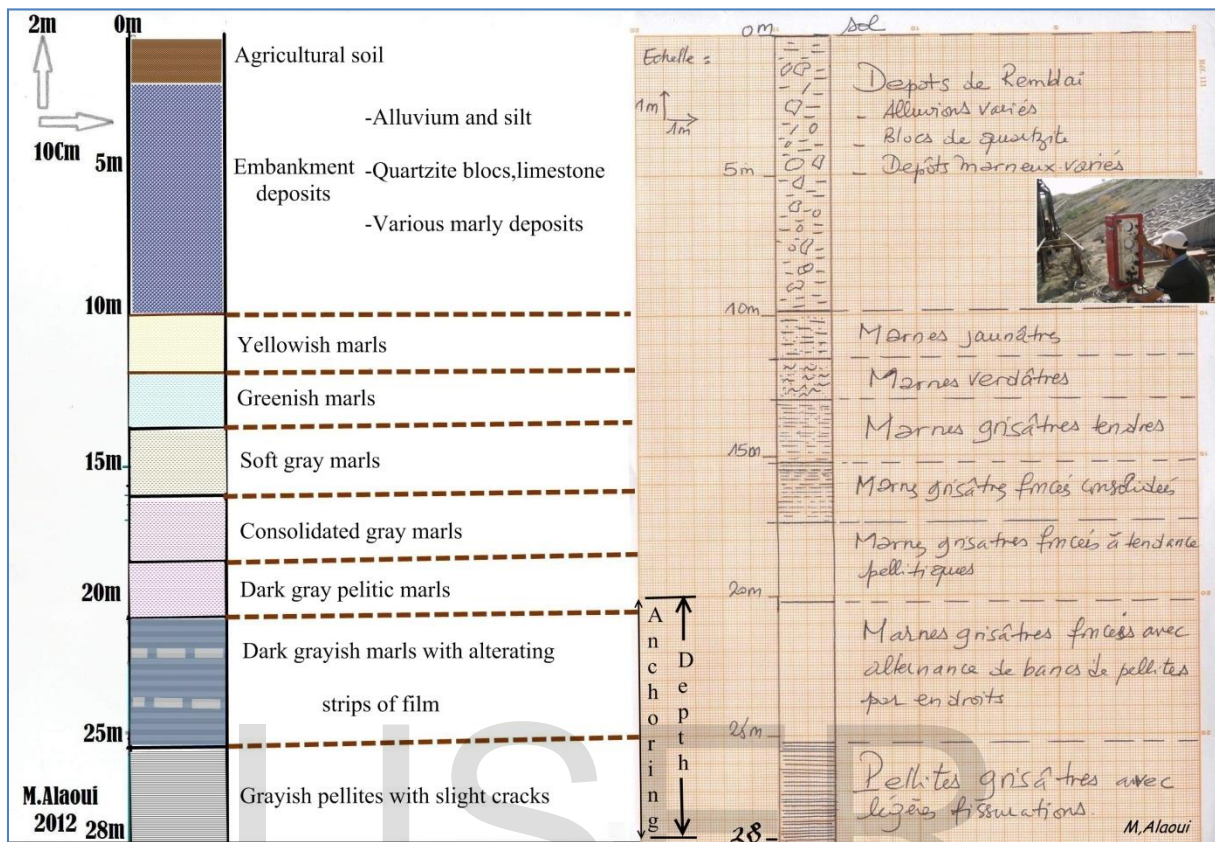 2m
0m
10Cm
5m
10m
15m
20m
25m
28m
M.Alaoui
2012
Agricultural soil
-Alluvium and silt
Embankment -Quartzite blocs,limestone
deposits
-Various marly deposits
Yellowish marls
Greenish marls
Soft gray marls
Consolidated gray marls
Dark gray pelitic marls
Dark grayish marls with alterating
strips of film
Grayish pellites with slight cracks
Anchoring
Depth
0m sol
Echelle :
1m
1m
5m
10m
15m
20m
25m
28
Depots de Remblai
- Alluvions variés
- Blocs de quartzite
- Depôts marneux variés
Marnes jaunâtres
Marnes verdâtres
Marnes grisâtres tendres
Marns grisâtres foncés consolidés
Marns grisatres foncés à tendance
pellitiques
Marnes grisâtres foncés avec
alternance de bancs de pellites
par endroits
Pellites grisâtres avec
légères fissurations.
M,Alaoui
IJSER